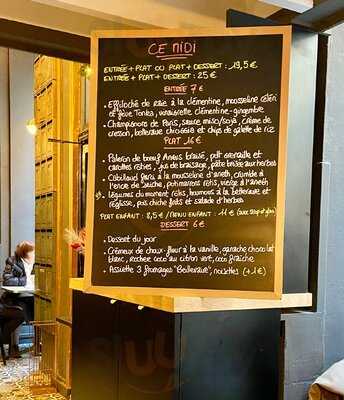 CE MIDI
ENTRÉE + PLAT OU PLAT + DESSERT : 19,5 €
ENTRÉE + PLAT + DESSERT : 25 €
ENTRÉE 7 €
• Effiloché de raie à la clémentine, mousseline céleri
et fève Tonka, vinaigrette clémentine-gingembre
• Champignons de Paris, sauce miso/soja, crème de
cresson, betterave chioggia et chips de galette de riz
PLAT 16 €
• Paleron de bœuf Angus braisé, petit grenaille et
carottes rôties, jus de braisage, pâte brisée aux herbes
• Cabillaud farci à la mousseline d'aneth, crumble à
l'encre de seiche, potimarrons rôtis, vierge à l'aneth
• Légumes du moment rôtis, houmous à la betterave et
réglisse, pois chiche frits et salade d'herbes
PLAT ENFANT : 8,5 € / MENU ENFANT : 11 € (avec sirop et glace)
DESSERT 6 €
• Dessert du jour
• Crémeux de choux-fleur à la vanille, ganache chocolat
blanc, rocher coco au citron vert, coco fraîche
• Assiette 3 fromages "Belleraux", noisettes (+1 €)